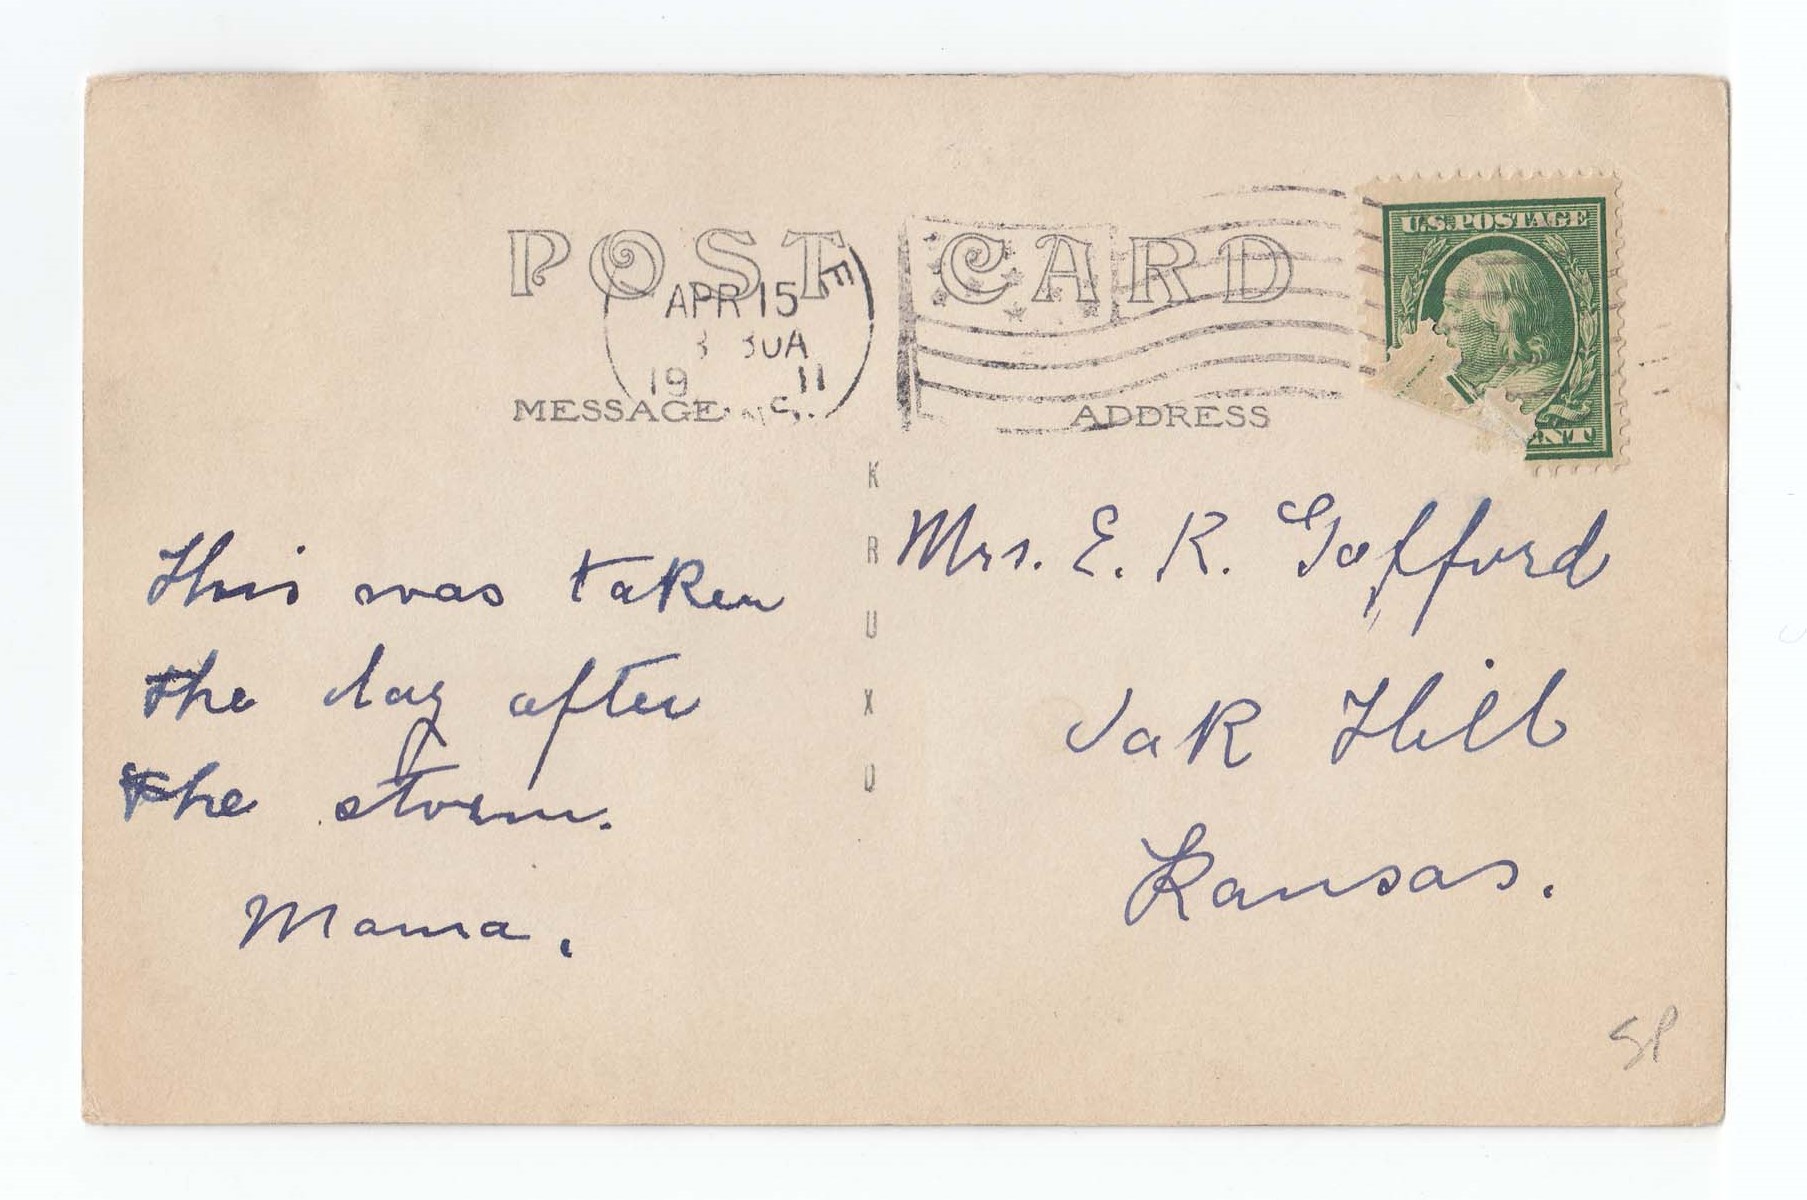 POST CARD
APR 15
30A
19 11
MESSAGE
ADDRESS
U.S. POSTAGE
ENT
KRUXO
This was taken
the day after
the storm.
Mama.
Mrs. E. R. Gofford
Oak Hill
Kansas.